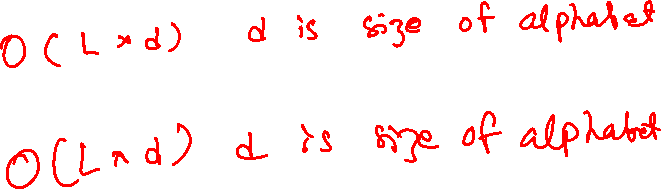 O(L × d) d is size of alphabet
O(L × d) d is size of alphabet